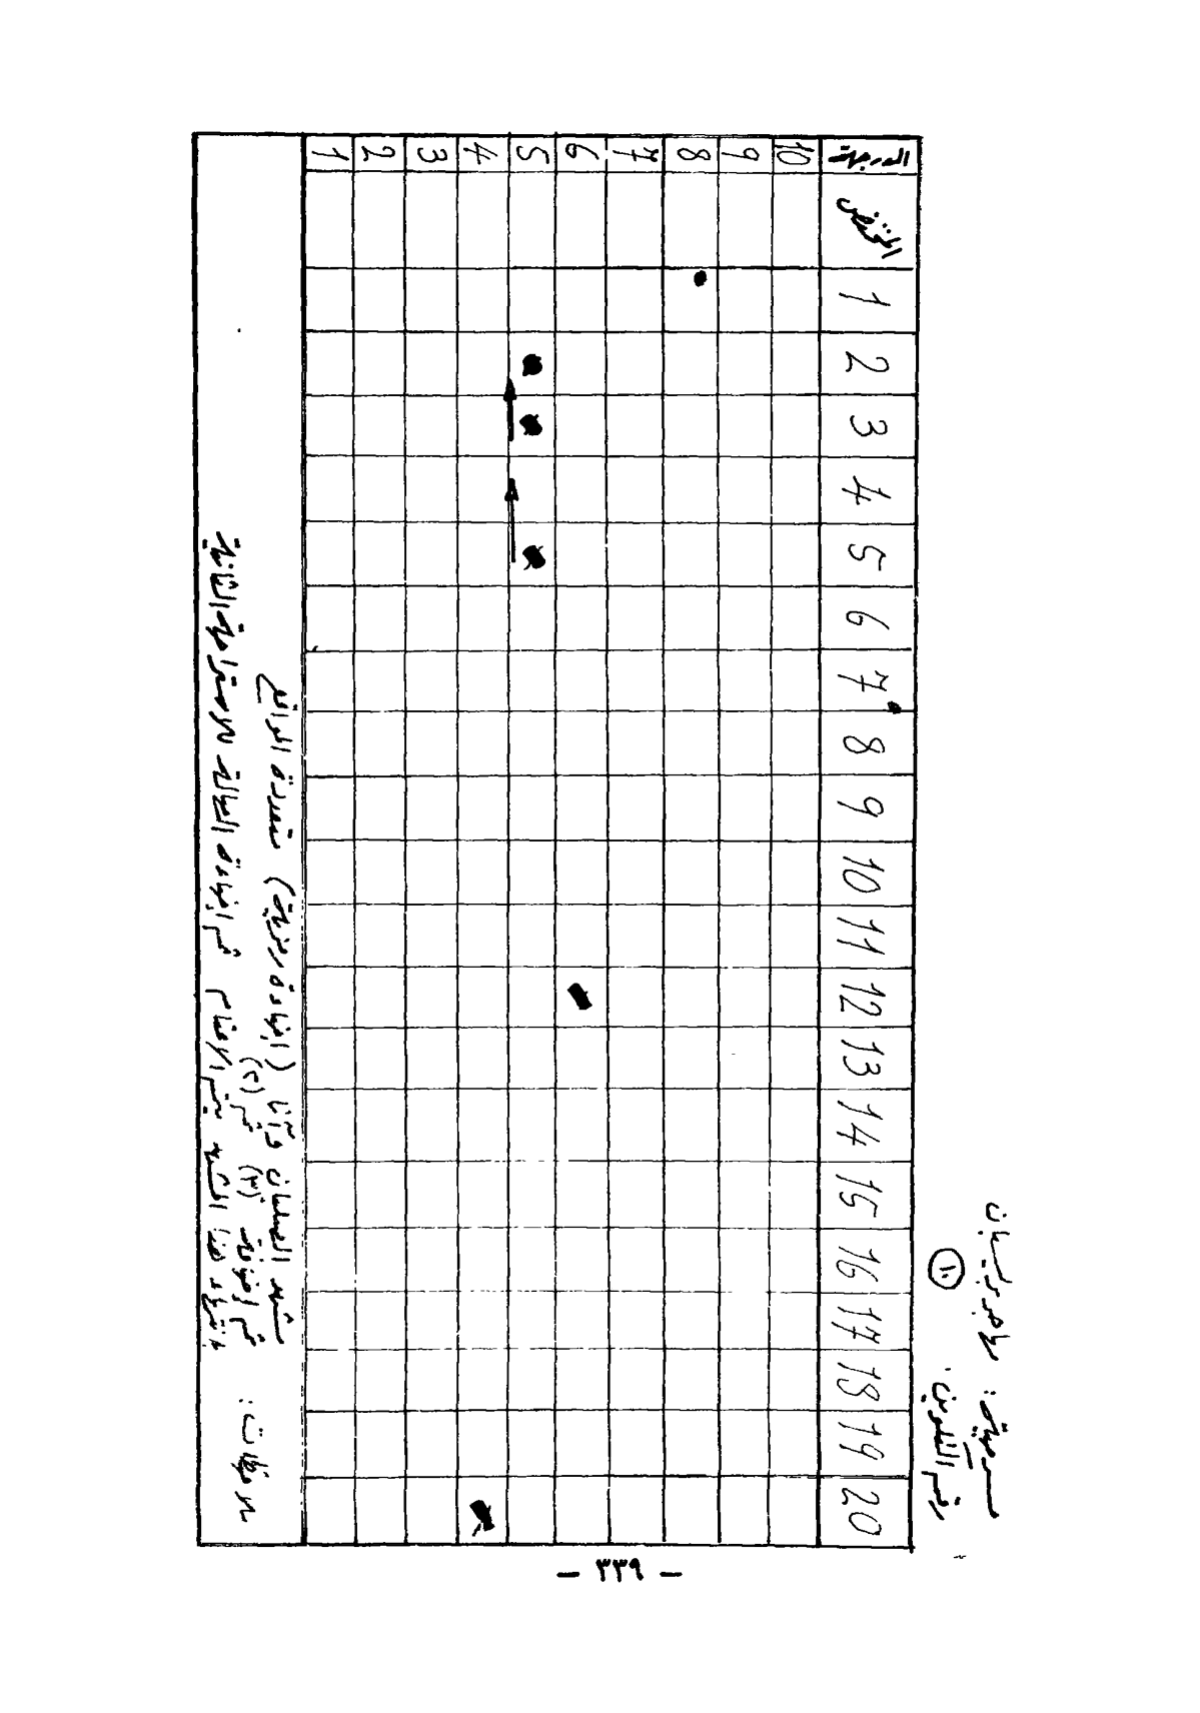 مسرحية : مهاجر بريسبان
رقم التكوين . ١٠
الدرجات
10
9
8
7
6
5
4
3
2
1
المخفض
1
2
3
4
5
6
7
8
9
10
11
12
13
14
15
16
17
18
19
20
ملاحظات :
مشهد الصلبان قرآنا ( إضاءة رمزية ) متعددة المواقع
ثم إضاءة (٣) ثم (٢)
بانتهاء هذا المشهد يتم الإظلام ثم إضاءة الصالة للاستراحة الثانية
– ٣٣٩ –